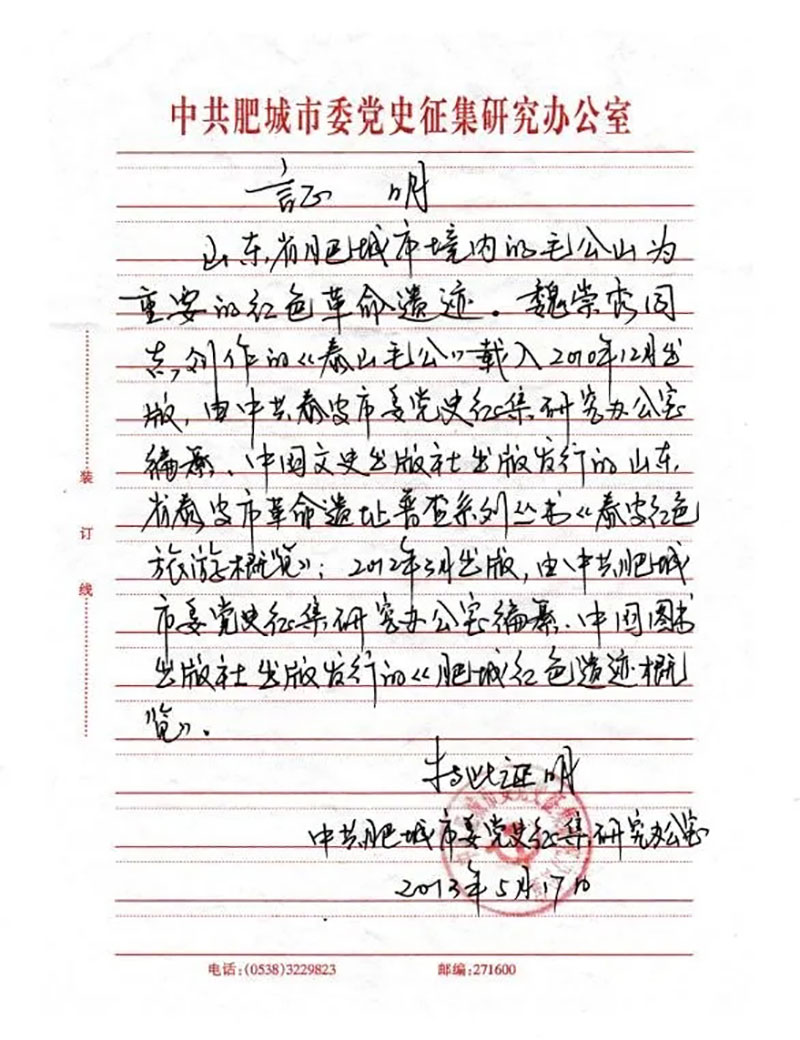 中共肥城市委党史征集研究办公室
証 明
山东省肥城市境内的毛公山为
重要的红色革命遗迹。魏崇秀同
志创作的《泰山毛公》载入2010年12月出
版,由中共泰安市委党史征集研究办公室
编纂、中国文史出版社出版发行的山东
省泰安市革命遗址普查系列丛书《泰安红色
旅游概览》;2012年5月出版,由中共肥城
市委党史征集研究办公室编纂、中国图书
出版社出版发行的《肥城红色遗迹概
览》。
特此证明
中共肥城市委党史征集研究办公室
2013年5月17日
装
订
线
电话:(0538)3229823 邮编:271600